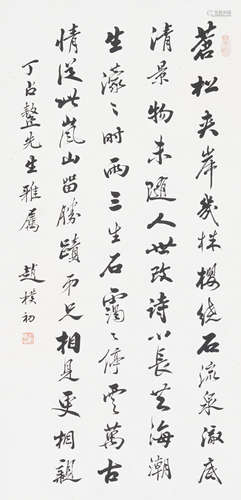 蒼松夾岸幾株櫻繞石流泉澈底
清景物未隨人世改詩心長共海潮
生濛々時雨三生石靄々停雲萬古
情從此嵐山留勝蹟弟兄相見更相親
丁占鏊先生雅屬
趙樸初